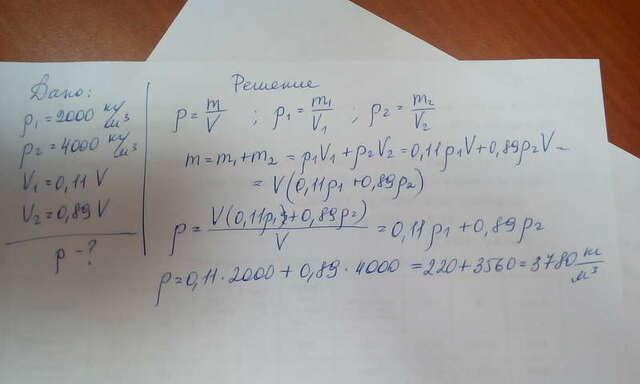 Дано:
ρ₁=2000 кг/м³
ρ₂=4000 кг/м³
V₁=0,11 V
V₂=0,89 V
ρ -?
Решение
ρ = m/V ; ρ₁ = m₁/V₁ ; ρ₂ = m₂/V₂
m=m₁+m₂ = ρ₁V₁+ρ₂V₂=0,11ρ₁V+0,89ρ₂V=
= V(0,11ρ₁+0,89ρ₂)
ρ = V(0,11ρ₁+0,89ρ₂)/V = 0,11ρ₁+0,89ρ₂
ρ=0,11·2000+0,89·4000 =220+3560=3780 кг/м³